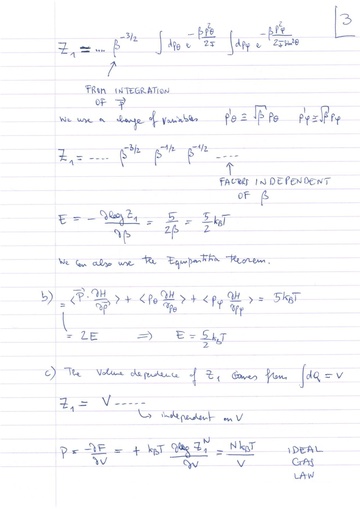 3
Z₁ ≃ .... β^{-3/2} ∫ dp_θ e^{-βp_θ²/2I} ∫ dp_φ e^{-βp_φ²/2I sin²θ}
FROM INTEGRATION
OF p⃗
We use a change of variables p'_θ ≡ √β p_θ p'_φ ≡ √β p_φ
Z₁ = .... β^{-3/2} β^{-1/2} β^{-1/2} ....
FACTORS INDEPENDENT
OF β
E = - ∂log Z₁/∂β = 5/2β = 5/2 k_BT
We can also use the Equipartition theorem.
b) = <P⃗ · ∂H/∂P⃗> + <p_θ ∂H/∂p_θ> + <p_φ ∂H/∂p_φ> = 5 k_BT
= 2E ⇒ E = 5/2 k_BT
c) The volume dependence of Z₁ comes from ∫dQ = V
Z₁ = V -----
↳ independent on V
P = -∂F/∂V = + k_BT ∂log Z₁^N/∂V = Nk_BT/V IDEAL
GAS
LAW